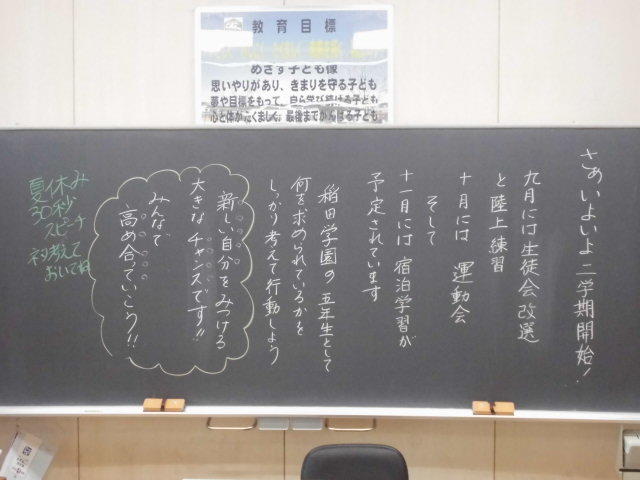 教育目標
めざす子ども像
思いやりがあり、きまりを守る子ども
夢や目標をもって、自ら学び続ける子ども
心と体がたくましく、最後までがんばる子ども
さぁ いよいよ 二学期開始!
九月には 生徒会改選
と 陸上練習
そして
十月には 運動会
十一月には 宿泊学習が
予定されています
稲田学園の 五年生として
何を求められているかを
しっかり考えて行動しよう
新しい自分をみつける
大きな チャンスです!!
みんなで
高め合っていこう!!
夏休み
30秒
スピーチ
考えて
おいてね